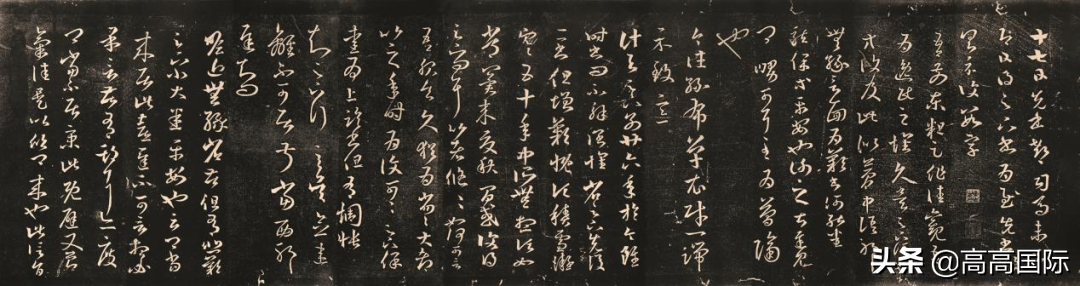 十七日先書郗司馬未
去即日得足下書為慰先書
以具示復數字
吾前東粗足作佳觀吾
為逸民之懷久矣足下何
以等復及此似夢中語耶
無緣言面為歎書何能悉
龍保等平安也謝之甚遲見
卿舅可耳至為簡隔
也
今往絲布單衣財一端
示致意
計與足下別廿六年於今雖
時書問不解闊懷省足下先後
二書但增歎慨頃積雪凝
寒五十年中所無想頃如
常冀來夏秋間或復得足
下問耳比者悠悠如何可言
吾服食久猶為劣劣大都
比之年時為復可可足下保
愛為上臨書但有惆悵
知足下行至吳念違
離不可居叔當西耶
遲知問
瞻近無緣省苦但有悲歎
足下小大悉平安也云卿當
來居此喜遲不可言想必
果言苦有期耳亦度
卿當不居京此既避又節
氣佳是以欣卿來也此信旨
头条 @高高国际